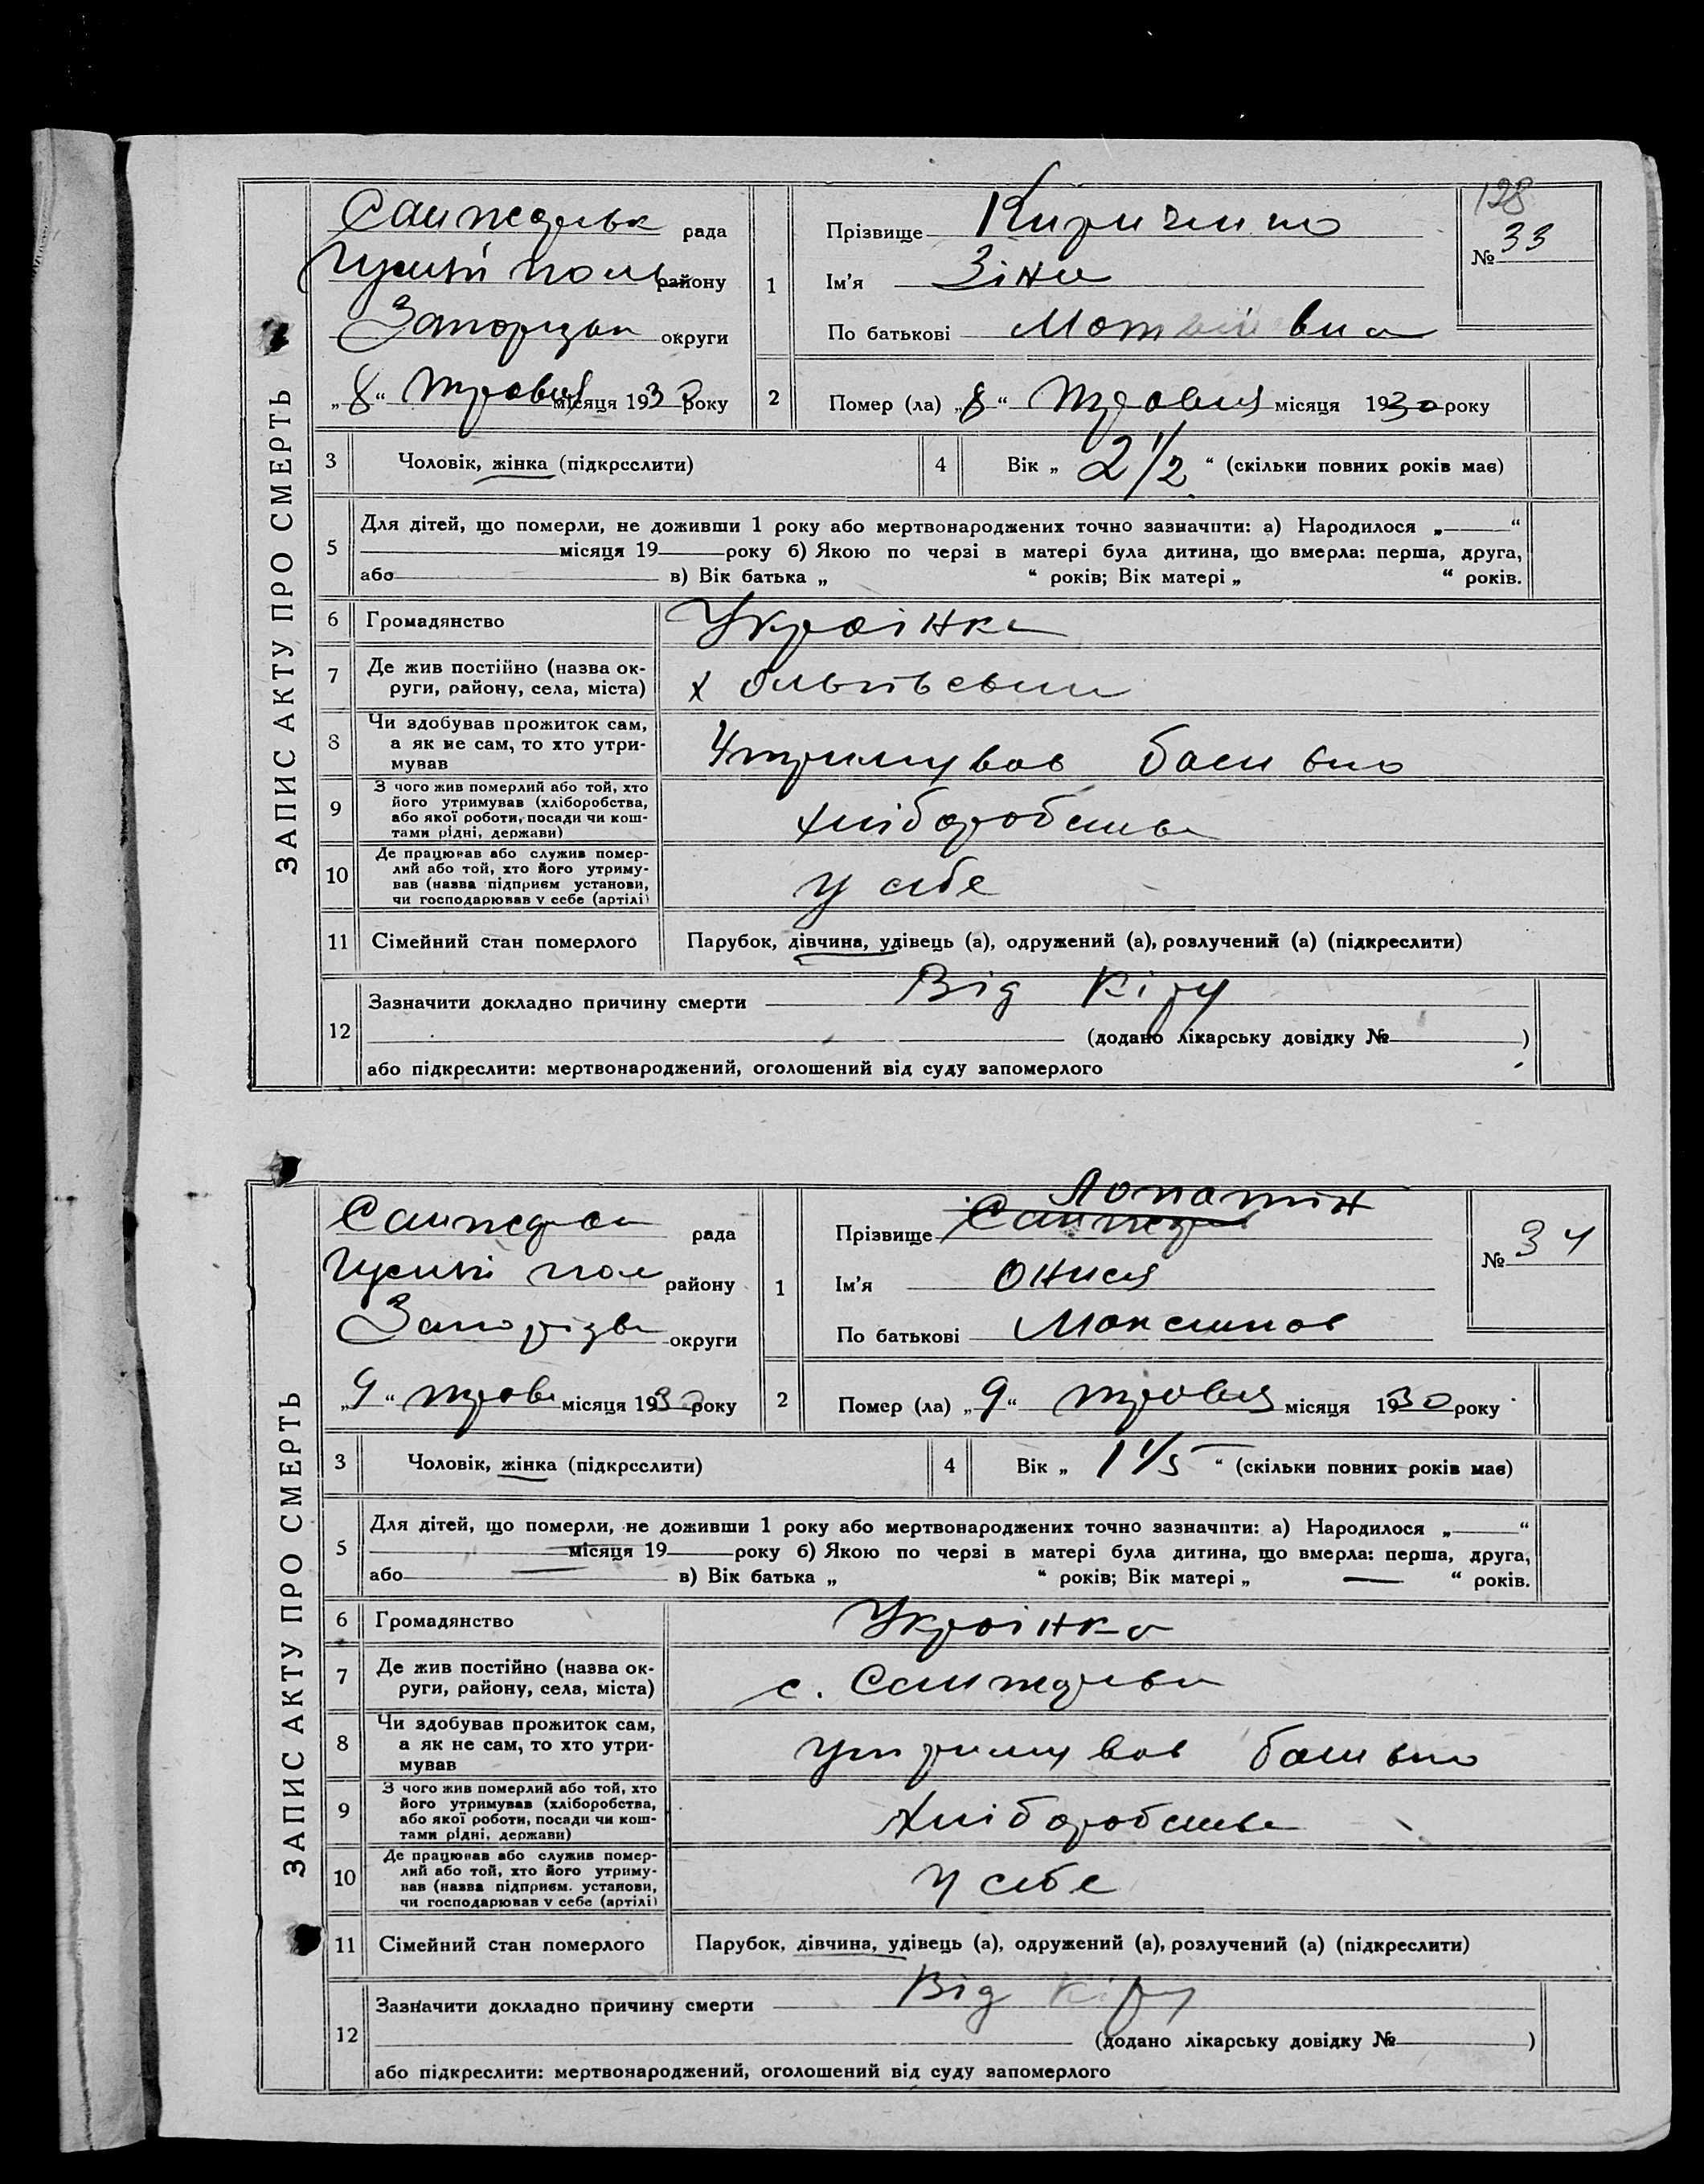 128
№ 33
ЗАПИС АКТУ ПРО СМЕРТЬ
рада
району
округи
„8“ Травня місяця 1930 року
1
Прізвище
Ім'я Зіна
По батькові Матвіівна
2
Помер (ла) „8“ Травня місяця 1930 року
3 Чоловік, жінка (підкреслити)
4 Вік „2 1/2“ (скільки повних років має)
5
Для дітей, що померли, не доживши 1 року або мертвонароджених точно зазначити: а) Народилося „ “
місяця 19 року б) Якою по черзі в матері була дитина, що вмерла: перша, друга,
або в) Вік батька „ “ років; Вік матері „ “ років.
6 Громадянство Украінка
7 Де жив постійно (назва ок-
руги, району, села, міста)
х
8 Чи здобував прожиток сам,
а як не сам, то хто утри-
мував
Утримував батько
9 З чого жив померлий або той, хто
його утримував (хліборобства,
або якої роботи, посади чи кош-
тами рідні, держави)
хліборобства
10 Де працював або служив помер-
лий або той, хто його утриму-
вав (назва підприєм установи,
чи господарював у себе (артілі)
у себе
11 Сімейний стан померлого Парубок, дівчина, удівець (а), одружений (а), розлучений (а) (підкреслити)
12 Зазначити докладно причину смерти Від Кіру
(додано лікарську довідку № )
або підкреслити: мертвонароджений, оголошений від суду запомерлого
№ 34
ЗАПИС АКТУ ПРО СМЕРТЬ
рада
району
округи
„9“ травн місяця 1930 року
1
Лопатін
Прізвище
Ім'я Онися
По батькові Максимов
2
Помер (ла) „9“ травня місяця 1930 року
3 Чоловік, жінка (підкреслити)
4 Вік „1 1/5“ (скільки повних років має)
5
Для дітей, що померли, не доживши 1 року або мертвонароджених точно зазначити: а) Народилося „ “
місяця 19 року б) Якою по черзі в матері була дитина, що вмерла: перша, друга,
або в) Вік батька „ “ років; Вік матері „ “ років.
6 Громадянство Украінка
7 Де жив постійно (назва ок-
руги, району, села, міста)
с.
8 Чи здобував прожиток сам,
а як не сам, то хто утри-
мував
утримував батько
9 З чого жив померлий або той, хто
його утримував (хліборобства,
або якої роботи, посади чи кош-
тами рідні, держави)
хліборобства
10 Де працював або служив помер-
лий або той, хто його утриму-
вав (назва підприєм. установи,
чи господарював у себе (артілі)
у себе
11 Сімейний стан померлого Парубок, дівчина, удівець (а), одружений (а), розлучений (а) (підкреслити)
12 Зазначити докладно причину смерти Від кіру
(додано лікарську довідку № )
або підкреслити: мертвонароджений, оголошений від суду запомерлого